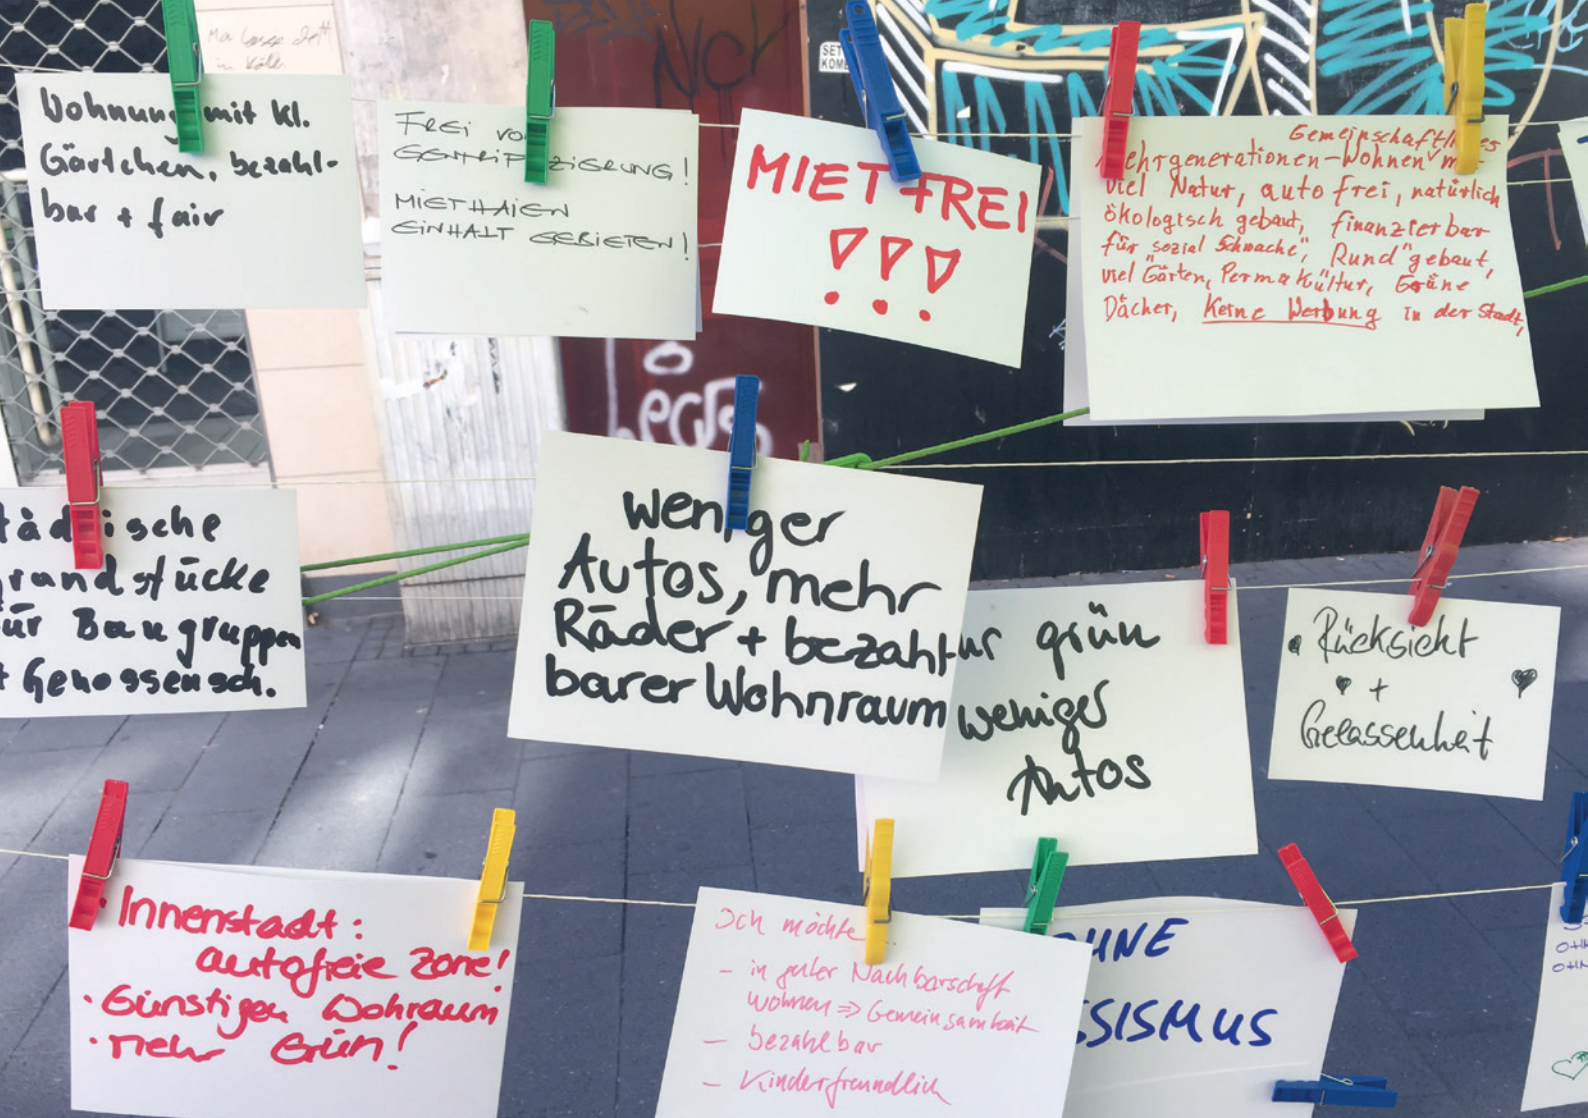 Wohnung mit kl.
Gärtchen, bezahl-
bar + fair
FREI VO
GENTRIFIZIERUNG!
MIETHAIEN
EINHALT GEBIETEN!
MIET-FREI
!!!
Gemeinschaftliches
Mehrgenerationen-Wohnen m
viel Natur, auto frei, natürlich
ökologisch gebaut, finanzierbar
für "sozial Schwache", "Rund" gebaut,
viel Gärten, Permakültur, Grüne
Dächer, Keine Werbung in der Stadt,
SET
KOM
tädtische
rundstücke
ür Baugruppen
+ Genossensch.
weniger
Autos, mehr
Räder + bezahl
barer Wohnraum
ur grün
weniger
Autos
Rücksicht
+
Gelassenheit
Innenstadt:
autofreie Zone!
· Günstigen Wohraum
· mehr Grün!
Ich möchte
- in guter Nachbarschaft
wohnen => Gemeinsamkeit
- bezahlbar
- Kinderfreundlich
OHNE
SSISMUS